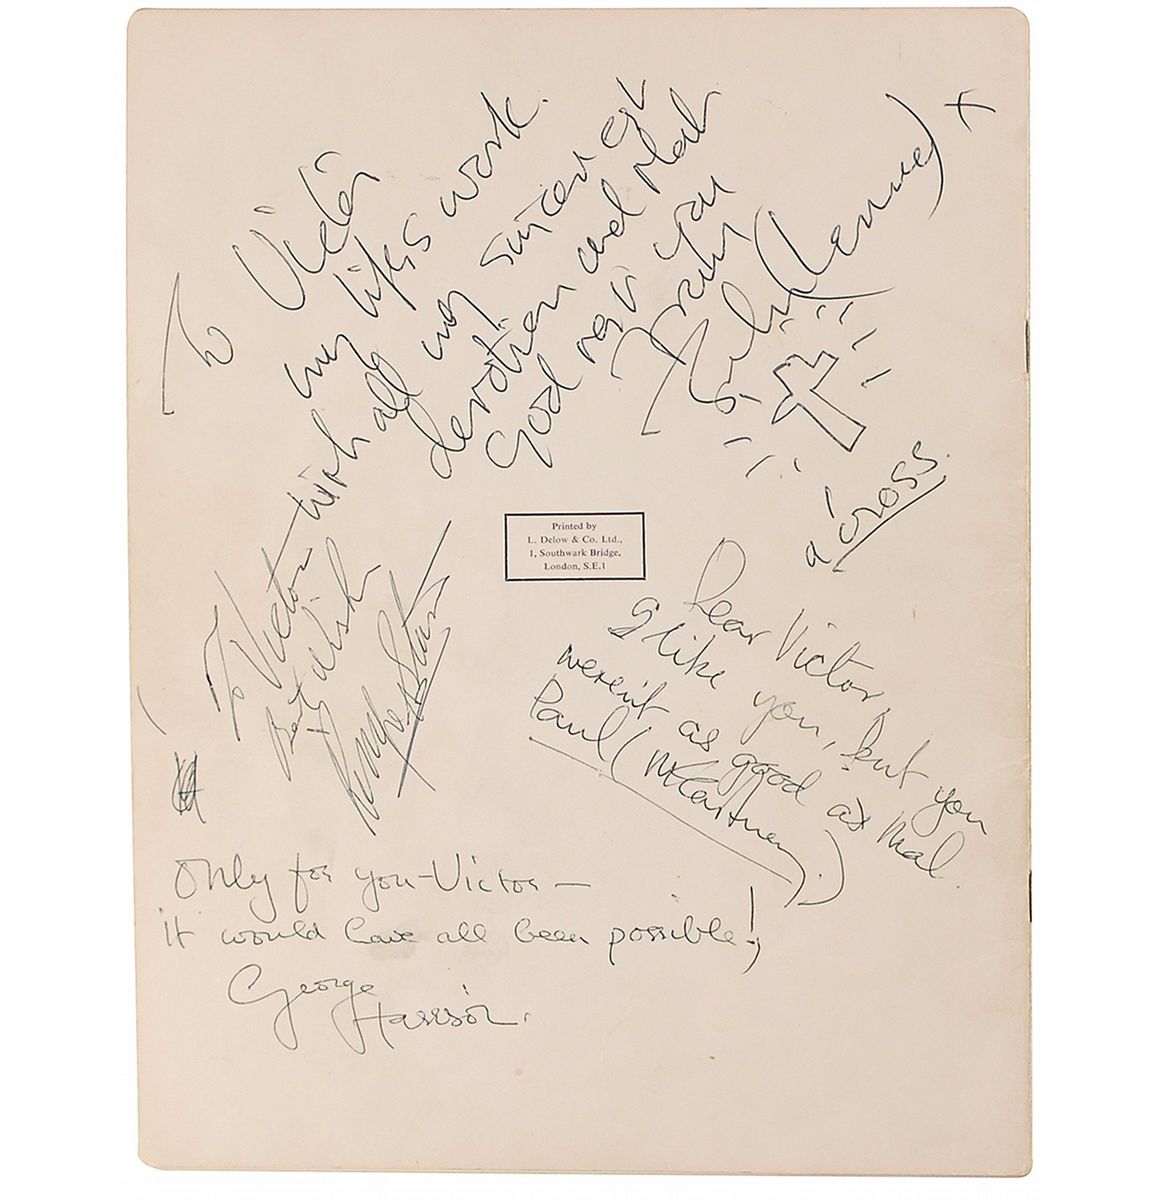 To Victor
my lifes work.
with all my
devotion and that
God you
John (Lennon) x
a cross.
Printed by
L. Delow & Co. Ltd.,
1, Southwark Bridge,
London, S.E.1
To Victor
Best Wish
Ringo Starr
Dear Victor,
I like you, but you
weren't as good as Mal.
Paul (McCartney.)
Only for you – Victor –
it would have all been possible!
George
Harrison.